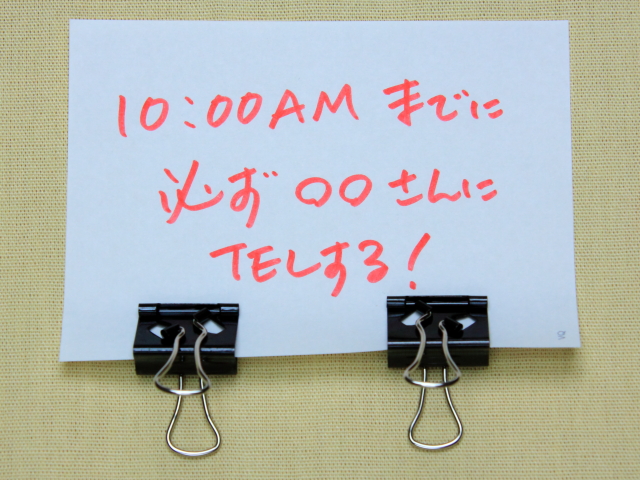 10:00AM までに
必ず 〇〇 さんに
TELする!